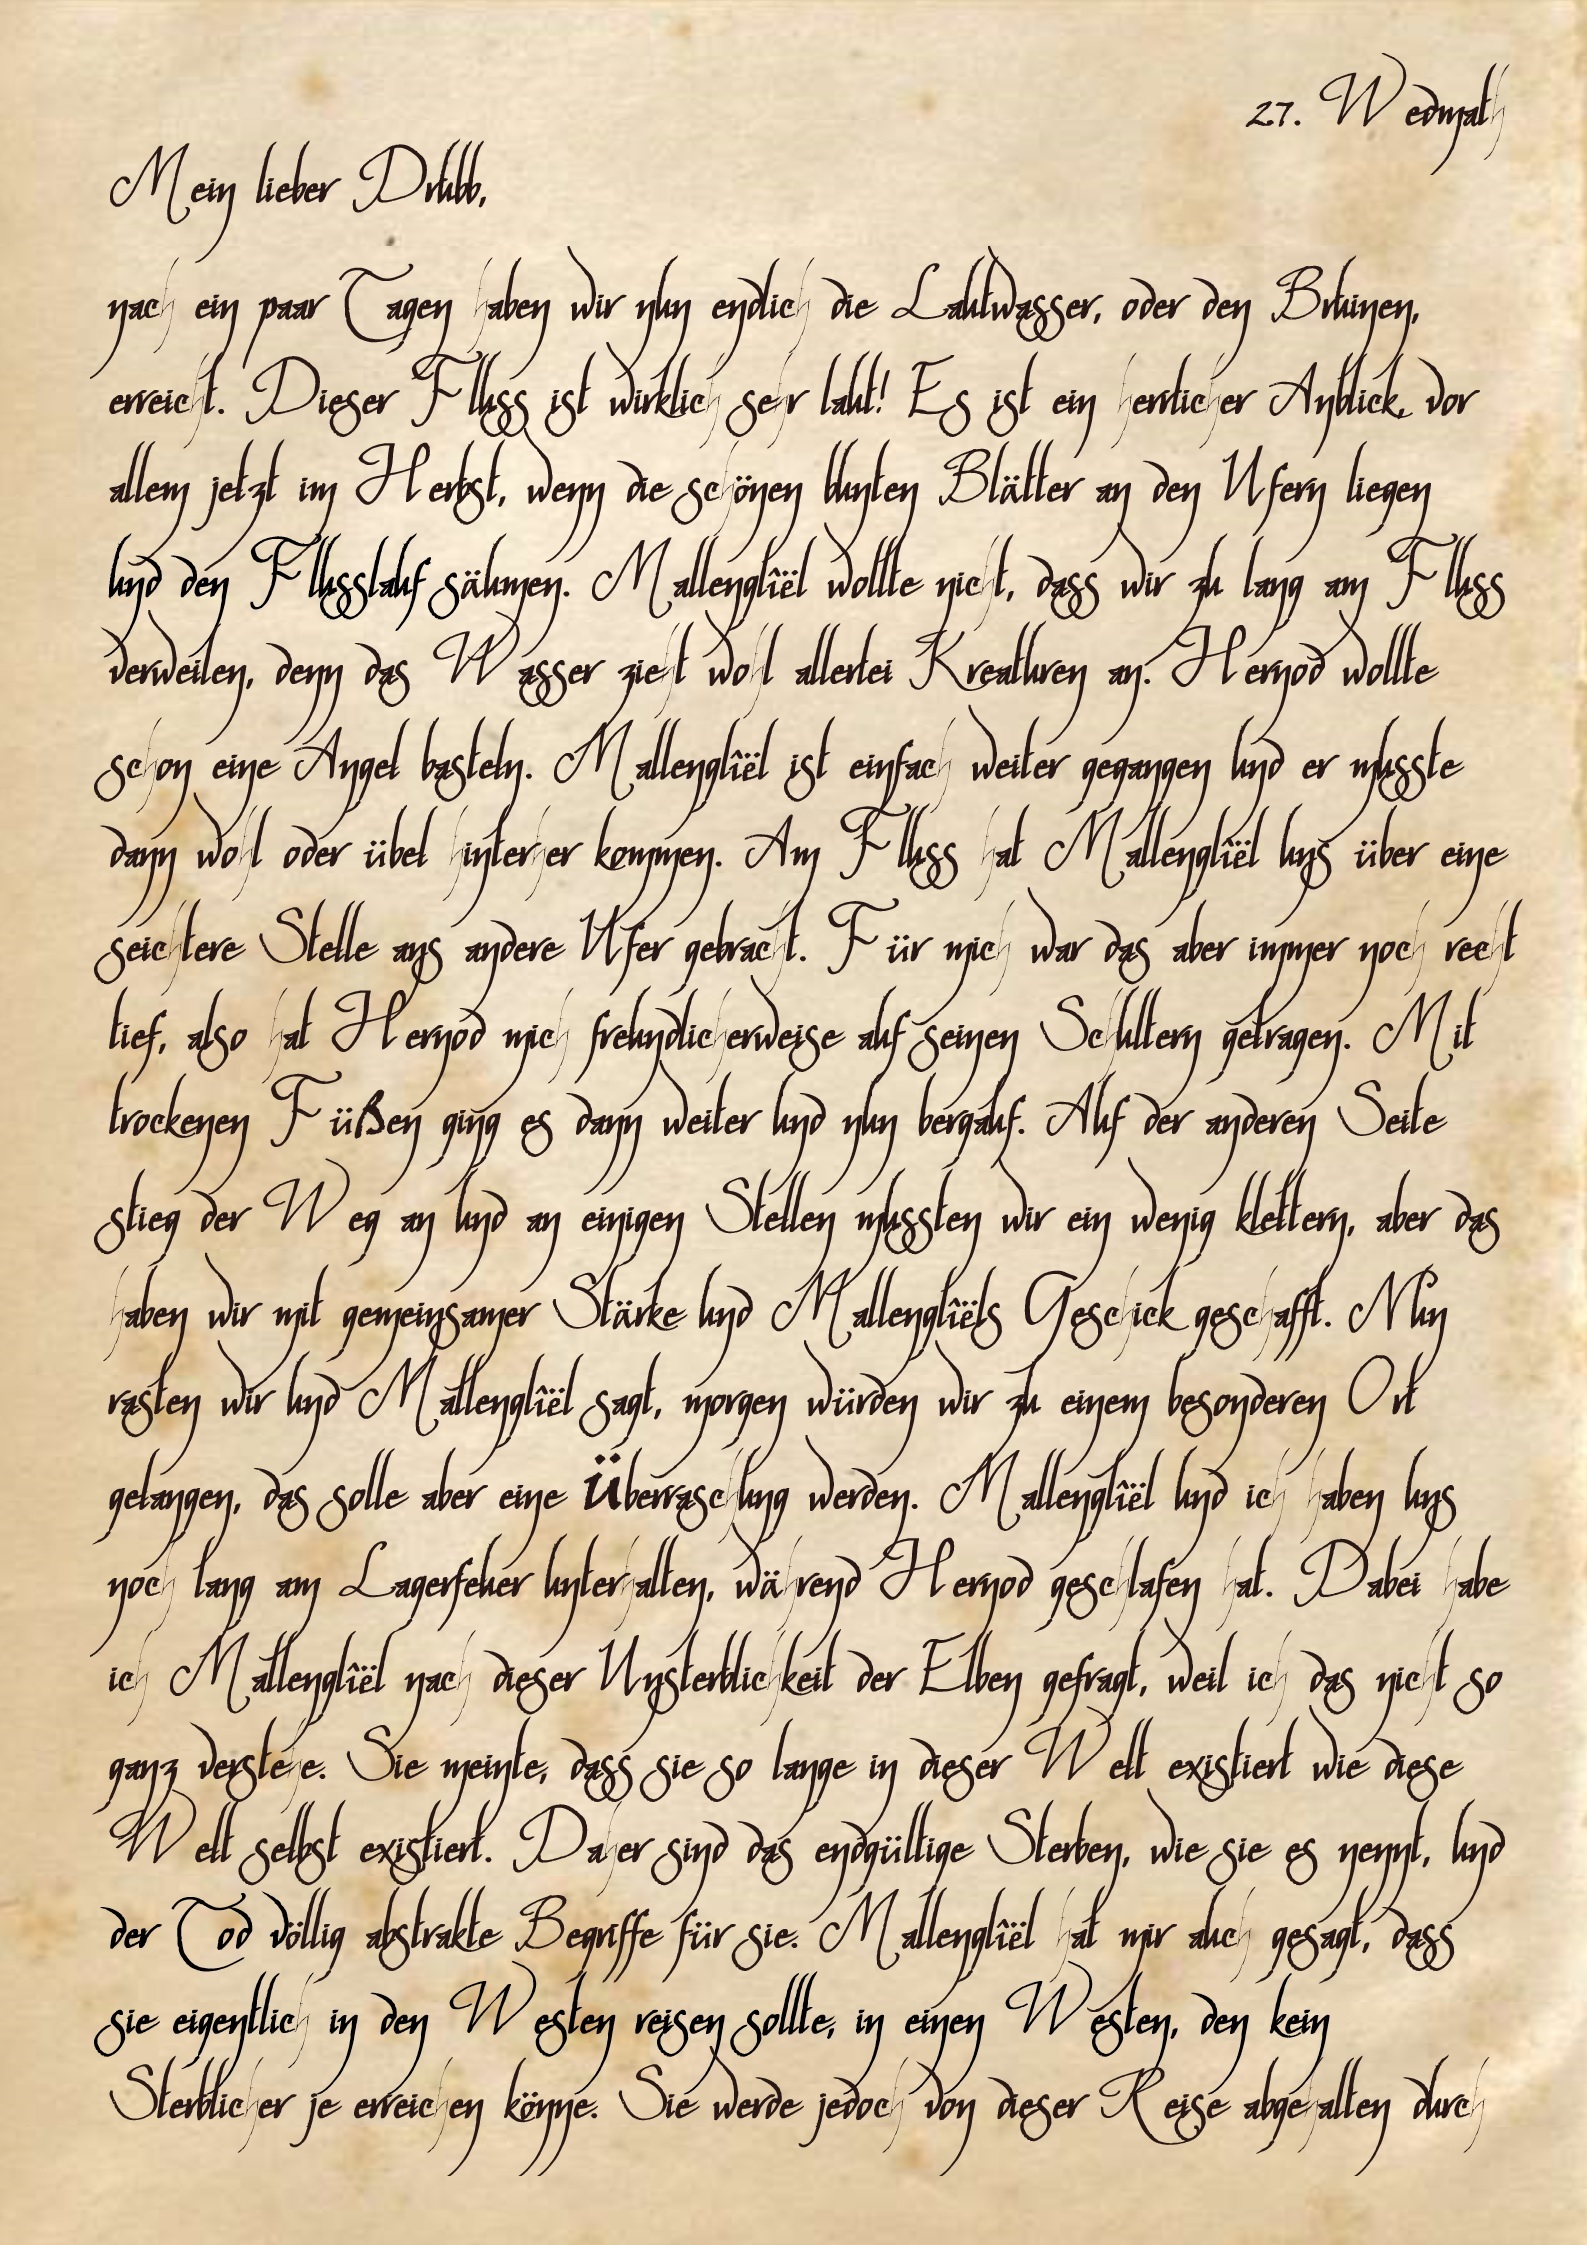 27. Wedmath
Mein lieber Drubb,
nach ein paar Tagen haben wir nun endlich die Lautwasser, oder den Bruinen,
erreicht. Dieser Fluss ist wirklich sehr laut! Es ist ein herrlicher Anblick, vor
allem jetzt im Herbst, wenn die schönen bunten Blätter an den Ufern liegen
und den Flusslauf säumen. Mallenglîël wollte nicht, dass wir zu lang am Fluss
verweilen, denn das Wasser zieht wohl allerlei Kreaturen an. Hernod wollte
schon eine Angel basteln. Mallenglîël ist einfach weiter gegangen und er musste
dann wohl oder übel hinterher kommen. Am Fluss hat Mallenglîël uns über eine
seichtere Stelle ans andere Ufer gebracht. Für mich war das aber immer noch recht
tief, also hat Hernod mich freundlicherweise auf seinen Schultern getragen. Mit
trockenen Füßen ging es dann weiter und nun bergauf. Auf der anderen Seite
stieg der Weg an und an einigen Stellen mussten wir ein wenig klettern, aber das
haben wir mit gemeinsamer Stärke und Mallenglîëls Geschick geschafft. Nun
rasten wir und Mallenglîël sagt, morgen würden wir zu einem besonderen Ort
gelangen, das solle aber eine Überraschung werden. Mallenglîël und ich haben uns
noch lang am Lagerfeuer unterhalten, während Hernod geschlafen hat. Dabei habe
ich Mallenglîël nach dieser Unsterblichkeit der Elben gefragt, weil ich das nicht so
ganz verstehe. Sie meinte, dass sie so lange in dieser Welt existiert wie diese
Welt selbst existiert. Daher sind das endgültige Sterben, wie sie es nennt, und
der Tod völlig abstrakte Begriffe für sie. Mallenglîël hat mir auch gesagt, dass
sie eigentlich in den Westen reisen sollte, in einen Westen, den kein
Sterblicher je erreichen könne. Sie werde jedoch von dieser Reise abgehalten durch